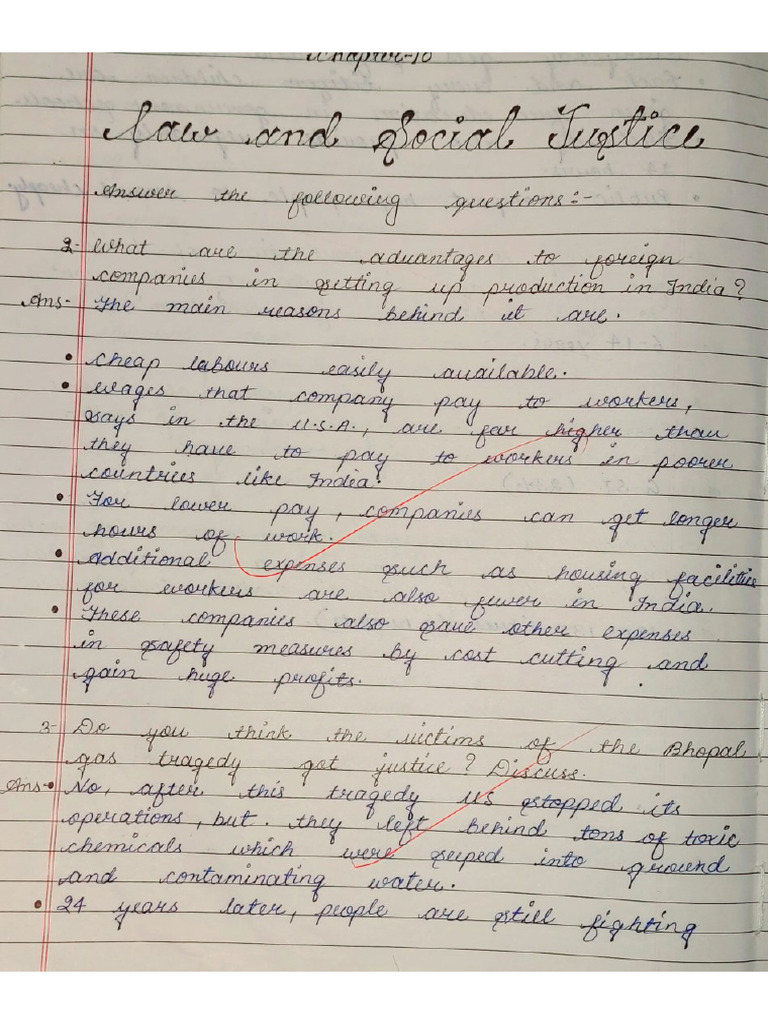 Chapter-10
Law and Social Justice
Answer the following questions:-
2- What are the advantages to foreign
companies in setting up production in India?
Ans- The main reasons behind it are.
• Cheap labours easily available.
• Wages that company pay to workers,
says in the U.S.A., are far higher than
they have to pay to workers in poorer
countries like India.
• For lower pay, companies can get longer
hours of work.
• Additional expenses such as housing facilities
for workers are also fewer in India.
• These companies also save other expenses
in safety measures by cost cutting and
gain huge profits.
3- Do you think the victims of the Bhopal
gas tragedy got justice? Discuss.
Ans- • No, after this tragedy US stopped its
operations, but. they left behind tons of toxic
chemicals which were seeped into ground
and contaminating water.
• 24 years later, people are still fighting